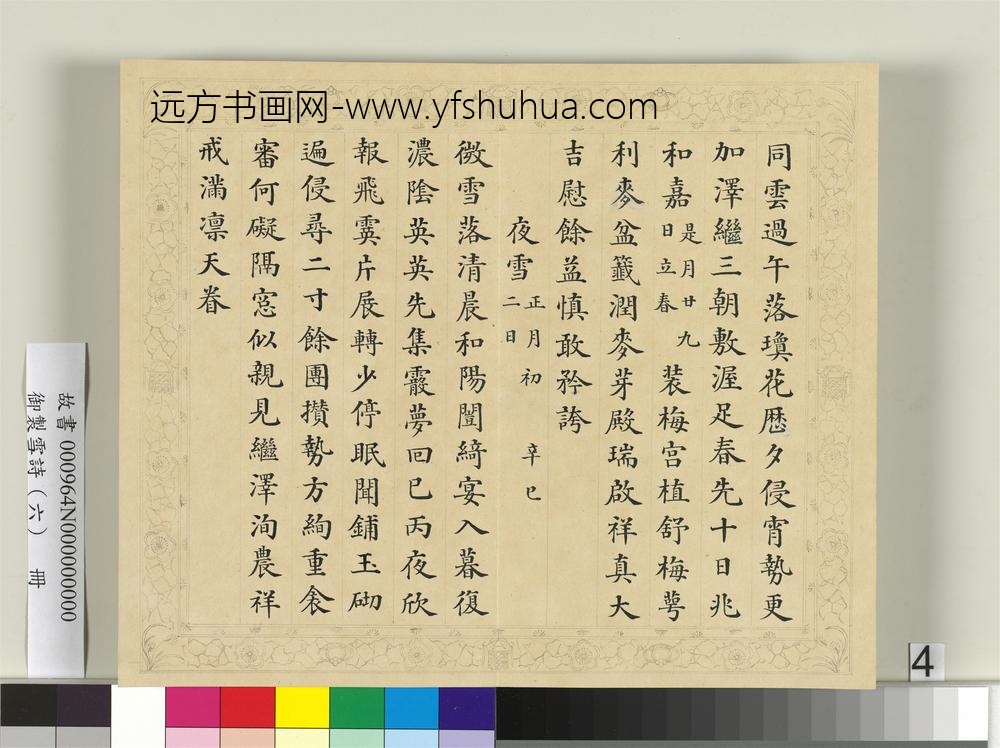 远方书画网-www.yfshuhua.com
同雲過午落瓊花曆夕侵宵勢更
加澤繼三朝敷渥足春先十日兆
和嘉是月廿九日立春裝梅宫植舒梅萼
利麥盆籤潤麥芽殿瑞啟祥真大
吉慰餘益慎敢矜誇
夜雪正月初二日 辛巳
微雪落清晨和陽闓綺宴入暮復
濃陰英英先集霰夢回已丙夜欣
報飛霙片展轉少停眠聞鋪玉砌
遍侵尋二寸餘團攢勢方絢重衾
審何礙隔窓似親見繼澤洵農祥
戒滿凛天眷
故書 000964N000000000
御製雪詩(六) 冊
4